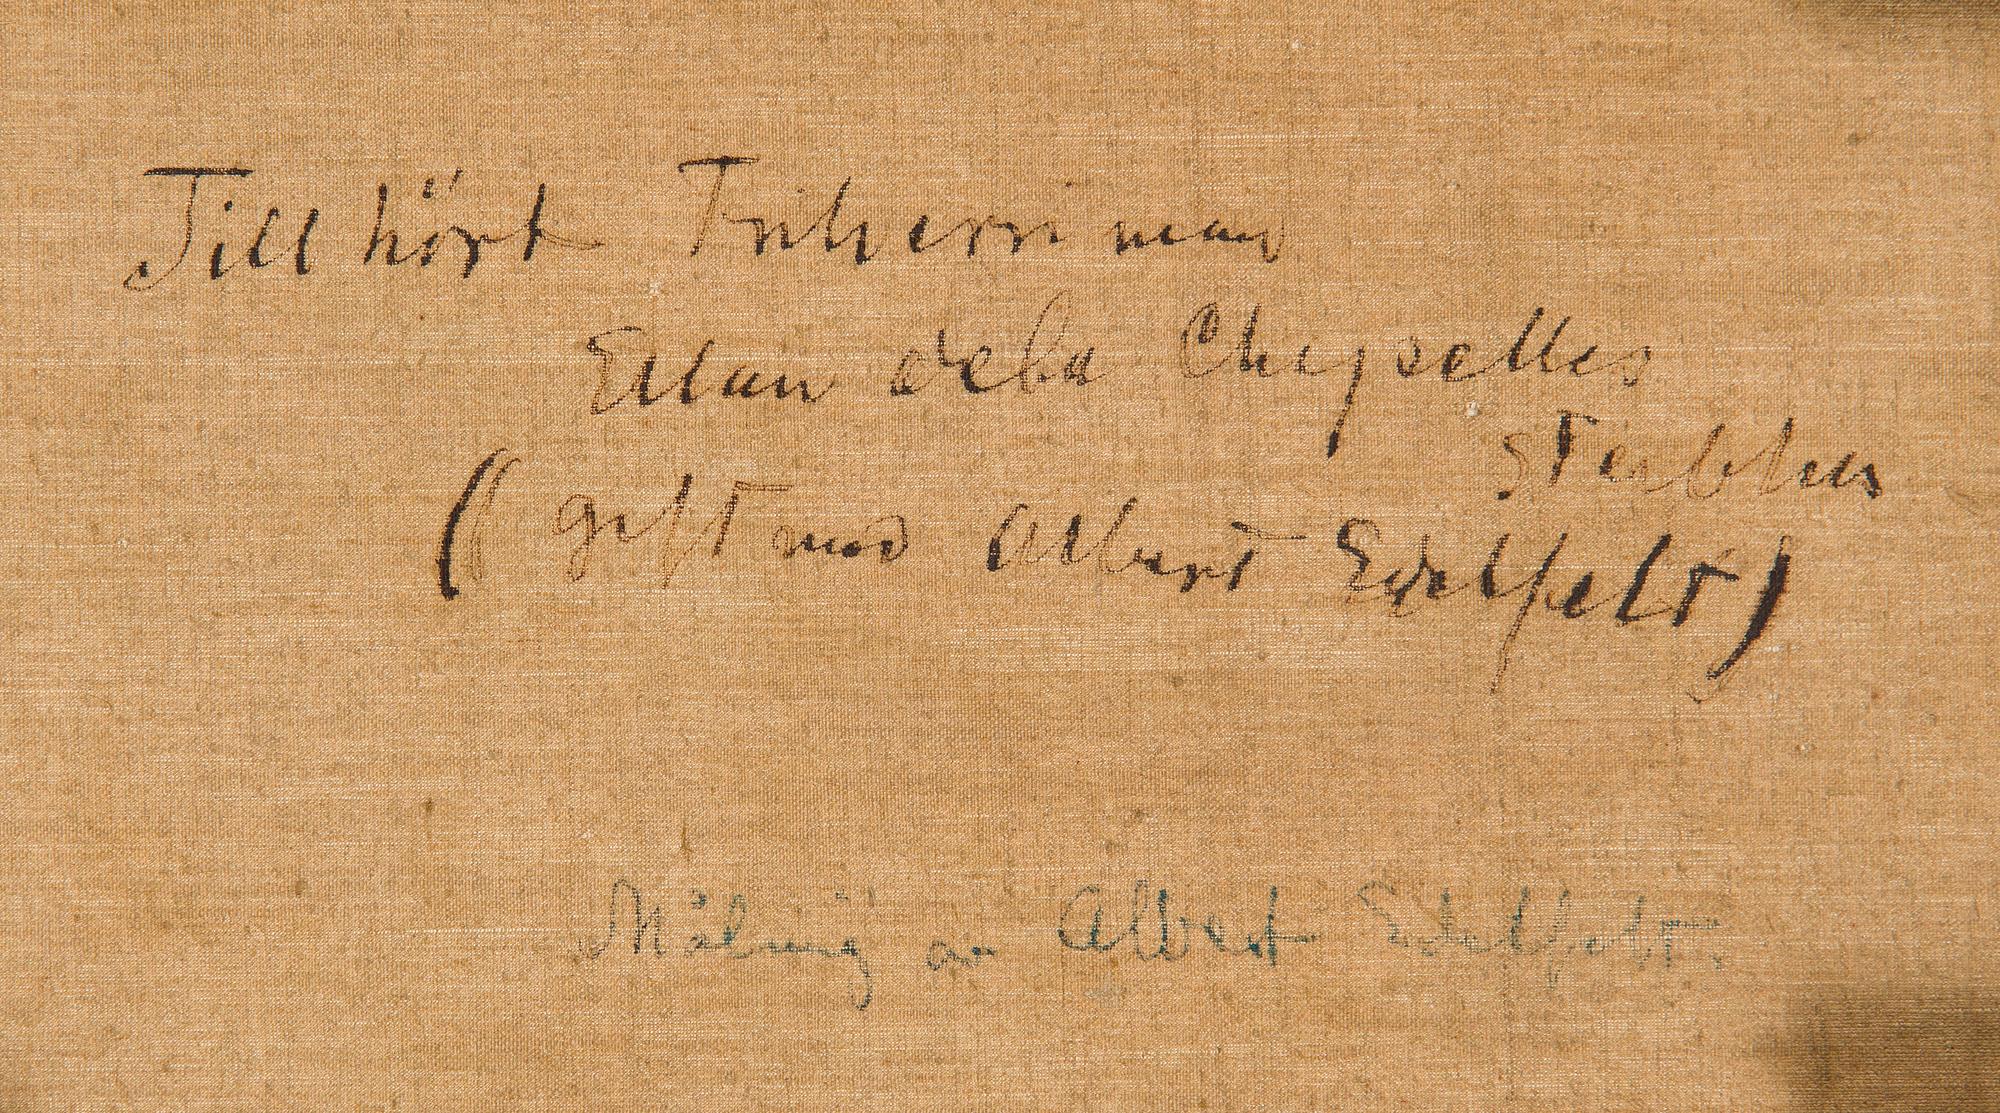 Tillhört Friherrinnan
Ellan de la Chapelles
sterbhus
(gift med Albert Edelfelt)
Målning av Albert Edelfelt.